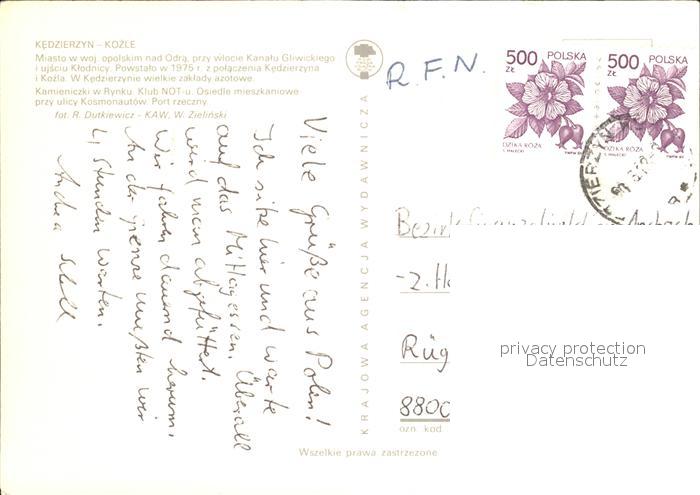 KĘDZIERZYN – KOŹLE
Miasto w woj. opolskim nad Odrą, przy wlocie Kanału Gliwickiego
i ujściu Kłodnicy. Powstało w 1975 r. z połączenia Kędzierzyna
i Koźla. W Kędzierzynie wielkie zakłady azotowe.
Kamieniczki w Rynku. Klub NOT-u. Osiedle mieszkaniowe
przy ulicy Kosmonautów. Port rzeczny.
fot. R. Dutkiewicz - KAW, W. Zieliński
Viele Grüße aus Polen!
Ich sitze hier und warte
auf das Mittagessen. Überall
wird man abgefüttert.
Wir fahren dauernd herum.
An der Grenze mußten wir
4 Stunden warten.
Andrea
KRAJOWA AGENCJA WYDAWNICZA
R.F.N.
500 ZŁ POLSKA
DZIKA RÓŻA
500 ZŁ POLSKA
DZIKA RÓŻA
Ansbach
-z.H
Rüg
8800
ozn. kod
privacy protection
Datenschutz
Wszelkie prawa zastrzeżone